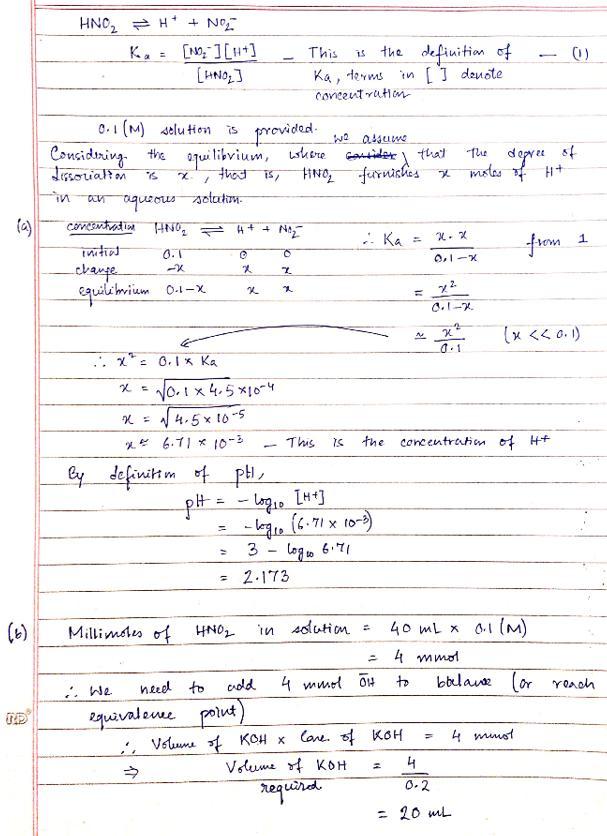 HNO₂ ⇌ H⁺ + NO₂⁻
Ka = [NO₂⁻][H+] / [HNO₂] — This is the definition of — (1)
Ka, terms in [ ] denote
concentration
0.1 (M) solution is provided.
we assume
Considering the equilibrium, where consider that the degree of
dissociation is x, that is, HNO₂ furnishes x moles of H+
in an aqueous solution.
(a) concentration HNO₂ ⇌ H+ + NO₂⁻ ∴ Ka = x.x / 0.1-x from 1
initial 0.1 0 0
change -x x x
equilibrium 0.1-x x x = x² / 0.1-x
≈ x² / 0.1 (x << 0.1)
∴ x² = 0.1 x Ka
x = √0.1 x 4.5 x10⁻⁴
x = √4.5 x 10⁻⁵
x ≈ 6.71 x 10⁻³ — This is the concentration of H+
By definition of pH,
pH = - log₁₀ [H+]
= - log₁₀ (6.71 x 10⁻³)
= 3 - log₁₀ 6.71
= 2.173
(b) Millimoles of HNO₂ in solution = 40 mL x 0.1 (M)
= 4 mmol
∴ We need to add 4 mmol OH⁻ to balance (or reach
equivalence point)
∴ Volume of KOH x Conc. of KOH = 4 mmol
⇒ Volume of KOH = 4 / 0.2
required
= 20 mL